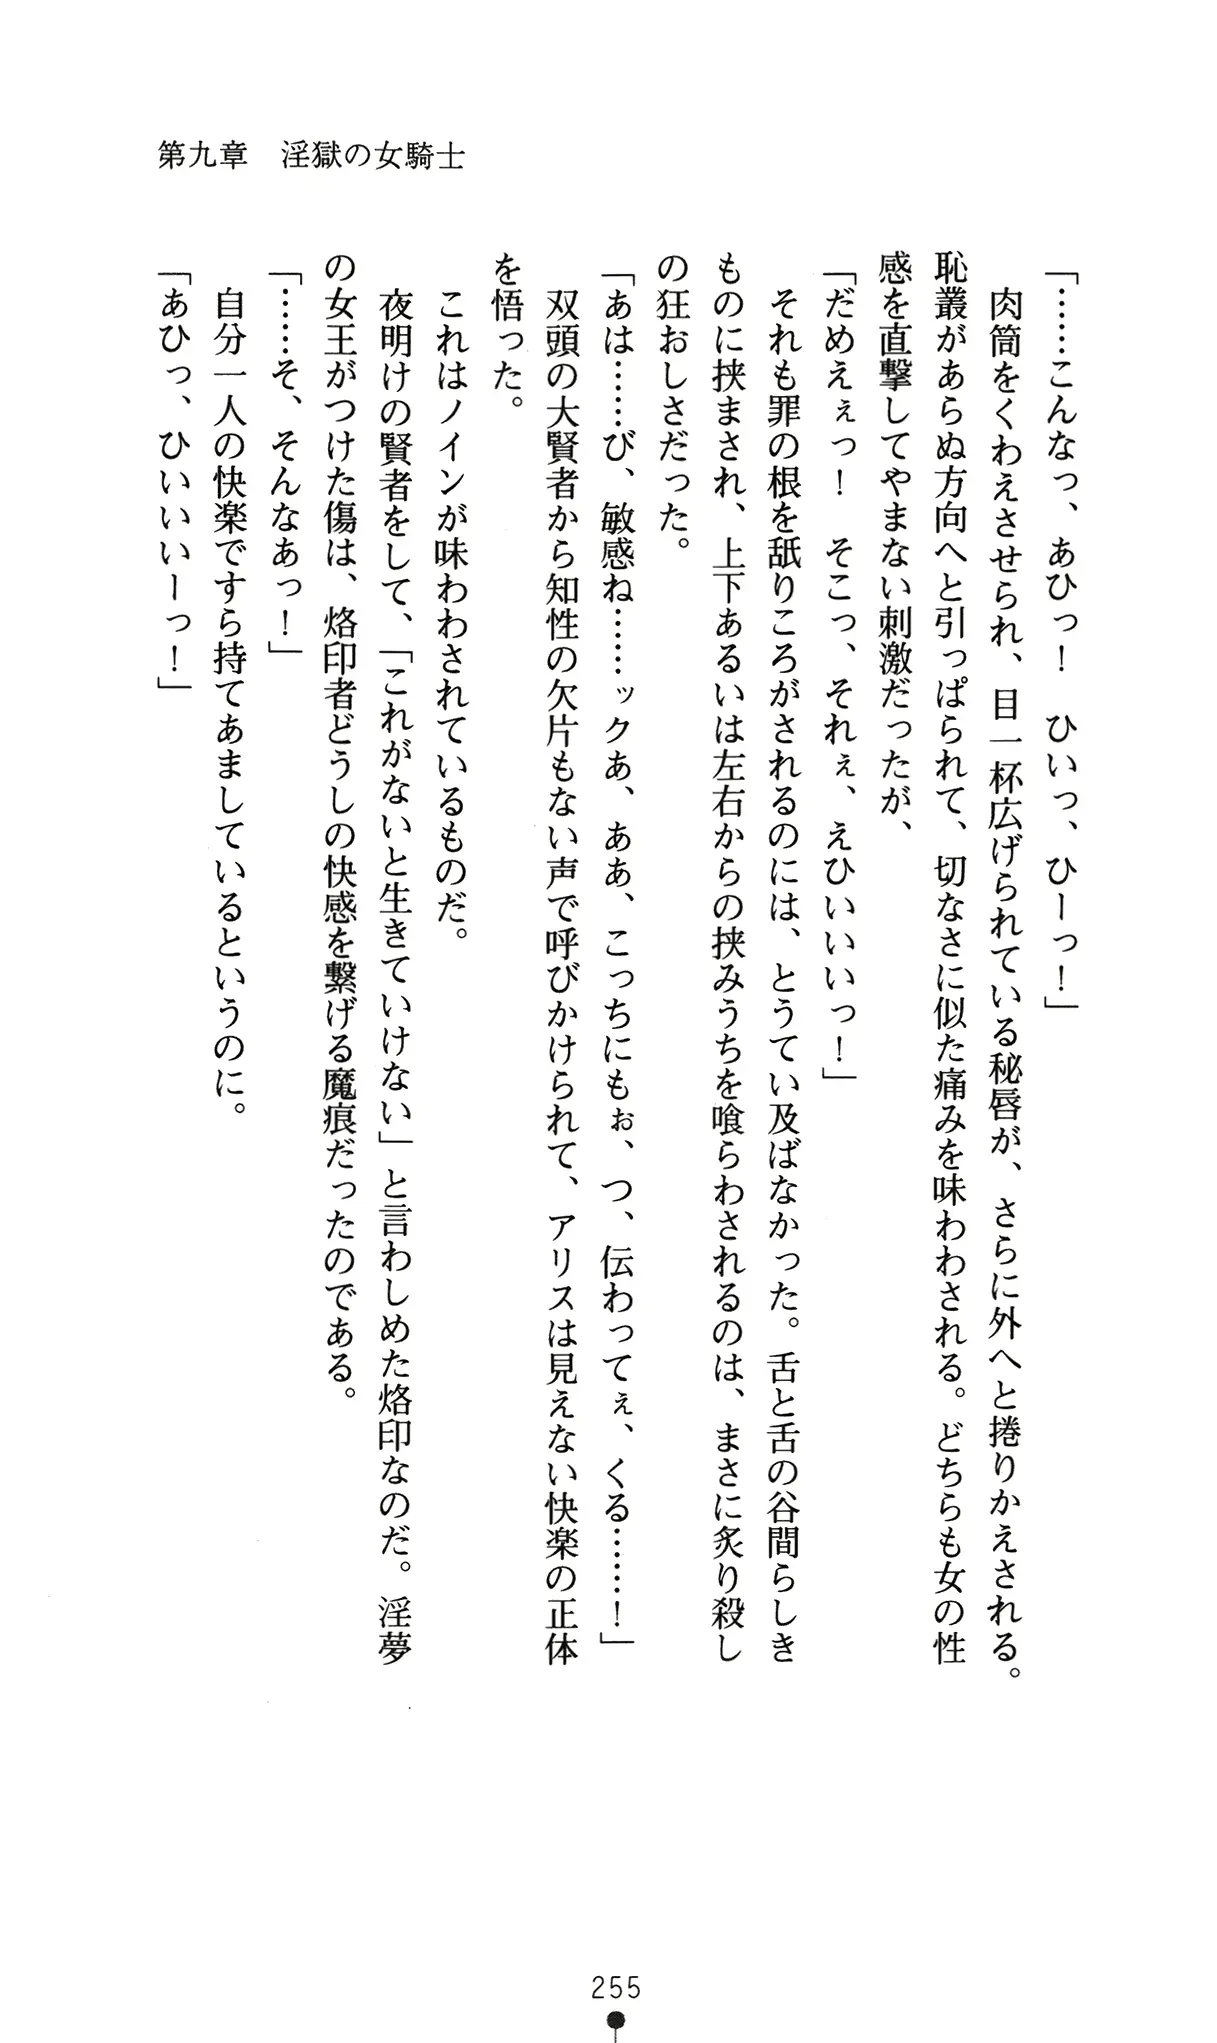 第九章　淫獄の女騎士
「……こんなっ、あひっ！　ひいっ、ひーっ！」
　肉筒をくわえさせられ、目一杯広げられている秘唇が、さらに外へと捲りかえされる。
恥叢があらぬ方向へと引っぱられて、切なさに似た痛みを味わわされる。どちらも女の性
感を直撃してやまない刺激だったが、
「だめえぇっ！　そこっ、それぇ、えひいいいっ！」
　それも罪の根を舐りころがされるのには、とうてい及ばなかった。舌と舌の谷間らしき
ものに挟まされ、上下あるいは左右からの挟みうちを喰らわされるのは、まさに炙り殺し
の狂おしさだった。
「あは……び、敏感ね……ックあ、ああ、こっちにもぉ、つ、伝わってぇ、くる……！」
　双頭の大賢者から知性の欠片もない声で呼びかけられて、アリスは見えない快楽の正体
を悟った。
　これはノインが味わわされているものだ。
　夜明けの賢者をして、「これがないと生きていけない」と言わしめた烙印なのだ。淫夢
の女王がつけた傷は、烙印者どうしの快感を繋げる魔痕だったのである。
「……そ、そんなあっ！」
　自分一人の快楽ですら持てあましているというのに。
「あひっ、ひいいいーっ！」
255